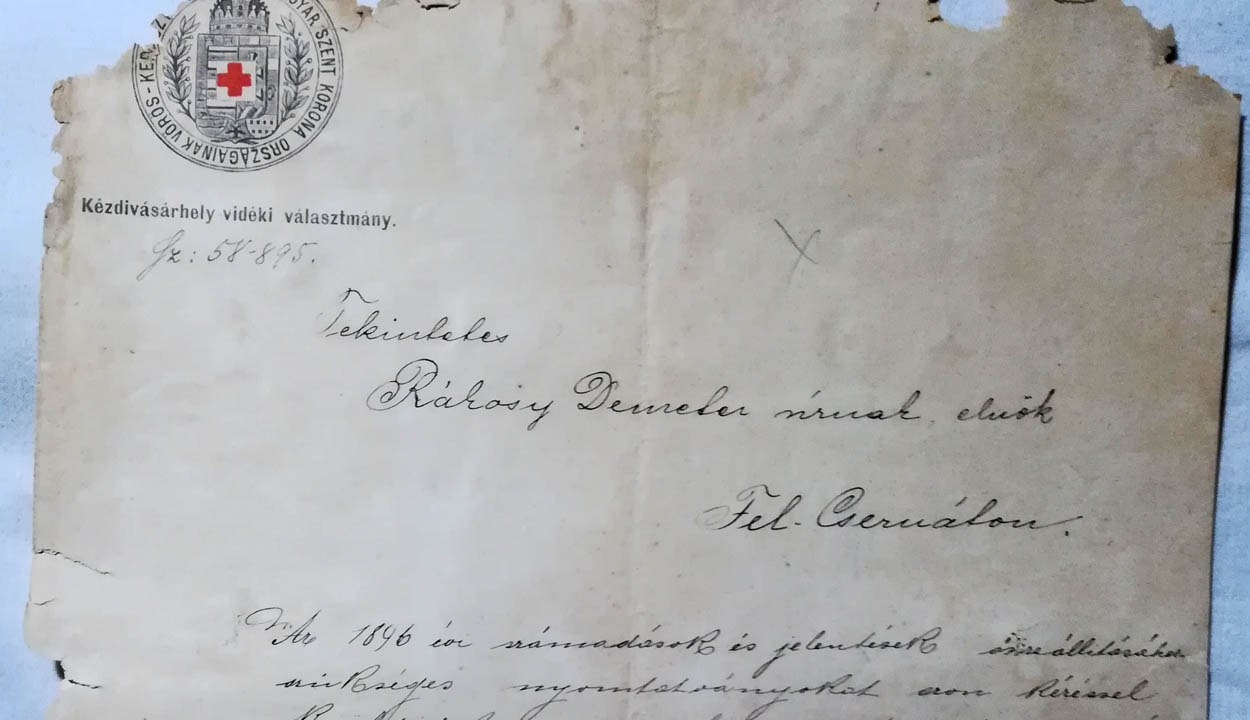 GYAR SZENT KORONA ORSZÁGAINAK VÖRÖS-KERESZ
Kézdivásárhely vidéki választmány.
Sz: 58-895.
Tekintetes
Rákosy Demeter úrnak, elnök
Fel-Csernáton.
Az 1896 évi számadások és jelentések összeállitásához
szükséges nyomtatványokat azon kéréssel